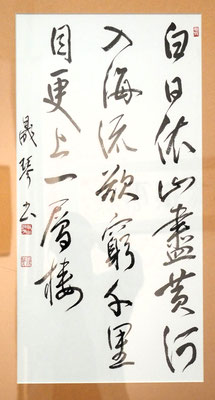 白日依山盡黄河
入海流欲窮千里
目更上一層樓
晟琴书